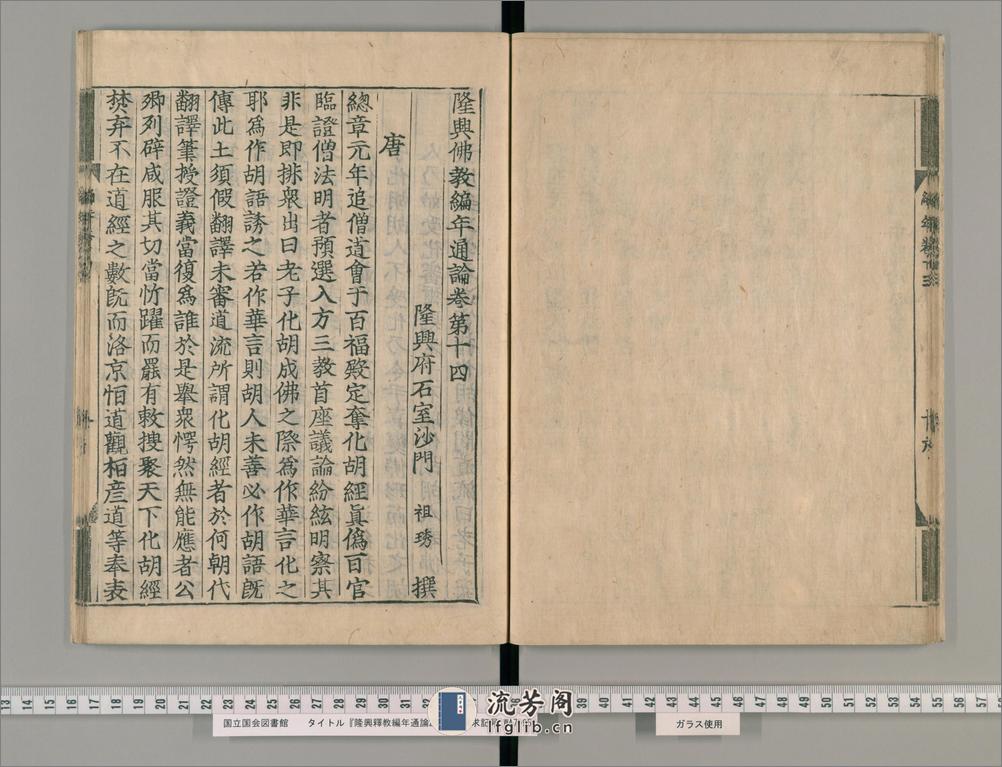 隆興佛教編年通論卷第十四
隆興府石室沙門 祖琇 撰
唐
總章元年追僧道會于百福殿定奪化胡經眞僞百官
臨證僧法明者預選入方三教首座議論紛紜明察其
非是即排衆出曰老子化胡成佛之際爲作華言化之
耶爲作胡語誘之若作華言則胡人未善必作胡語旣
傳此土須假翻譯未審道流所謂化胡經者於何朝代
翻譯筆授證義當復爲誰於是舉衆愕然無能應者公
卿列辟咸服其切當忻躍而罷有敕搜聚天下化胡經
焚弃不在道經之數旣而洛京恒道觀桓彦道等奉表
国立国会図書館 タイトル『隆興釋教編年通論
ガラス使用
流芳阁
lfglib.cn